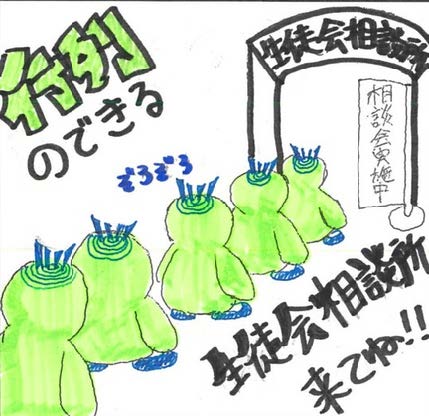 行列
のできる
生徒会相談所
相談会実施中
ぞろぞろ
生徒会相談所
来てね!!